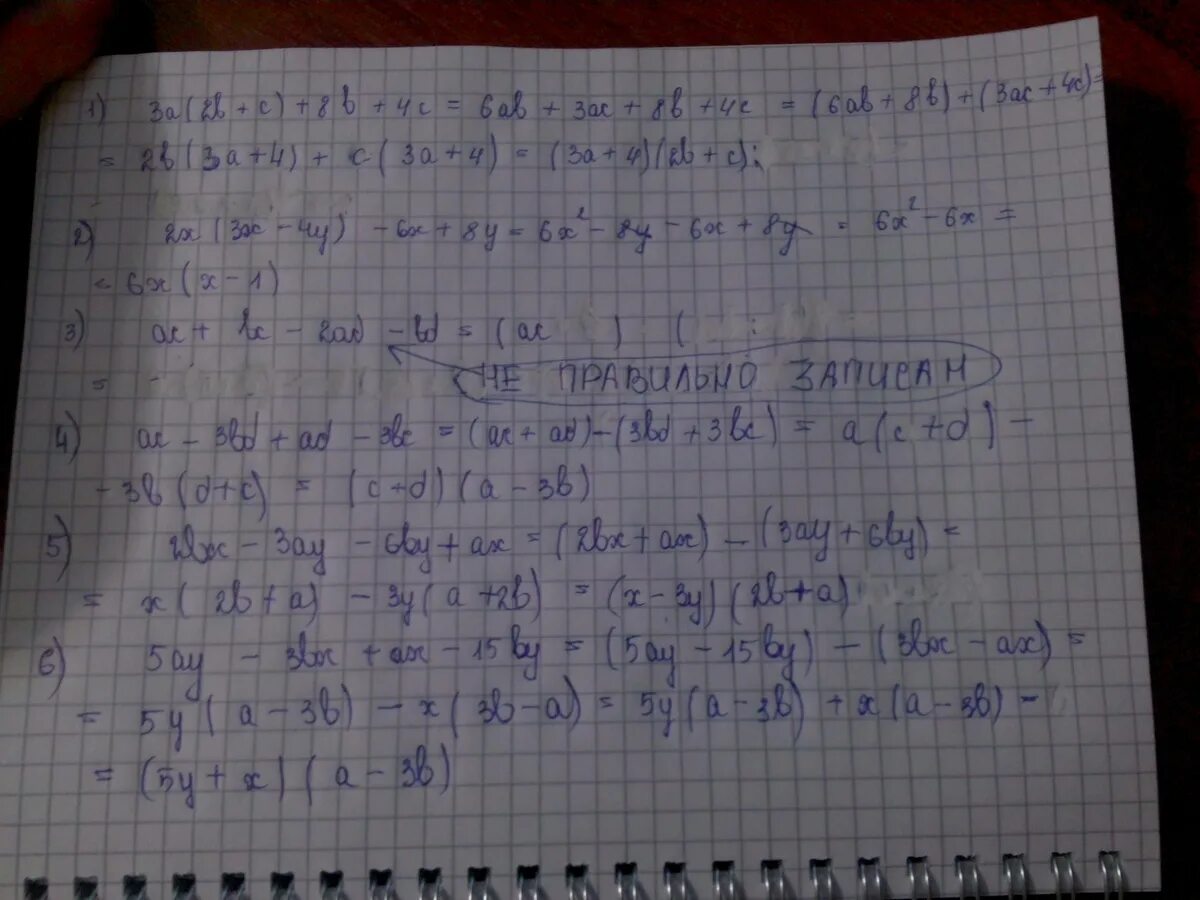 1) 3a(2b+c)+8b+4c = 6ab + 3ac + 8b + 4c = (6ab + 8b)+(3ac+4c)=
= 2b(3a+4) + c(3a+4) = (3a+4)(2b+c);
2) 2x(3x-4y) - 6x + 8y = 6x² - 8y - 6x + 8y = 6x² - 6x =
= 6x(x-1)
3) ac + bc - 2ad - bd = (ac ) (
= НЕ ПРАВИЛЬНО ЗАПИСАН
4) ac - 3bd + ad - 3bc = (ac + ad)-(3bd + 3bc) = a(c+d) -
- 3b(d+c) = (c+d)(a-3b)
5) 2bx - 3ay - 6by + ax = (2bx + ax) - (3ay + 6by) =
= x(2b+a) - 3y(a+2b) = (x-3y)(2b+a)
6) 5ay - 3bx + ax - 15by = (5ay - 15by) - (3bx - ax) =
= 5y(a-3b) - x(3b-a) = 5y(a-3b) + x(a-3b) =
= (5y+x)(a-3b)